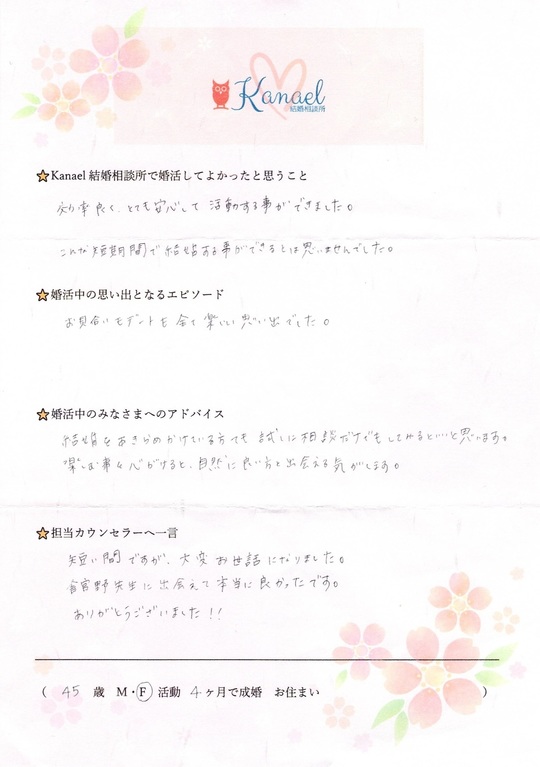 Kanael
結婚相談所
Kanael 結婚相談所で婚活してよかったと思うこと
効率良く、とても安心して 活動する事ができました。
こんな短期間で結婚する事ができるとは思いませんでした。
婚活中の思い出となるエピソード
お見合いもデートも全て楽しい思い出でした。
婚活中のみなさまへのアドバイス
結婚をあきらめかけている方でも試しに相談だけでもしてみるといいと思います。
楽しむ事を心がけると、自然に良い方と出会える気がします。
担当カウンセラーへ一言
短い間ですが、大変お世話になりました。
野先生に出会えて本当に良かったです。
ありがとうございました!!
( 45 歳 M・F 活動 4ヶ月で成婚 お住まい )